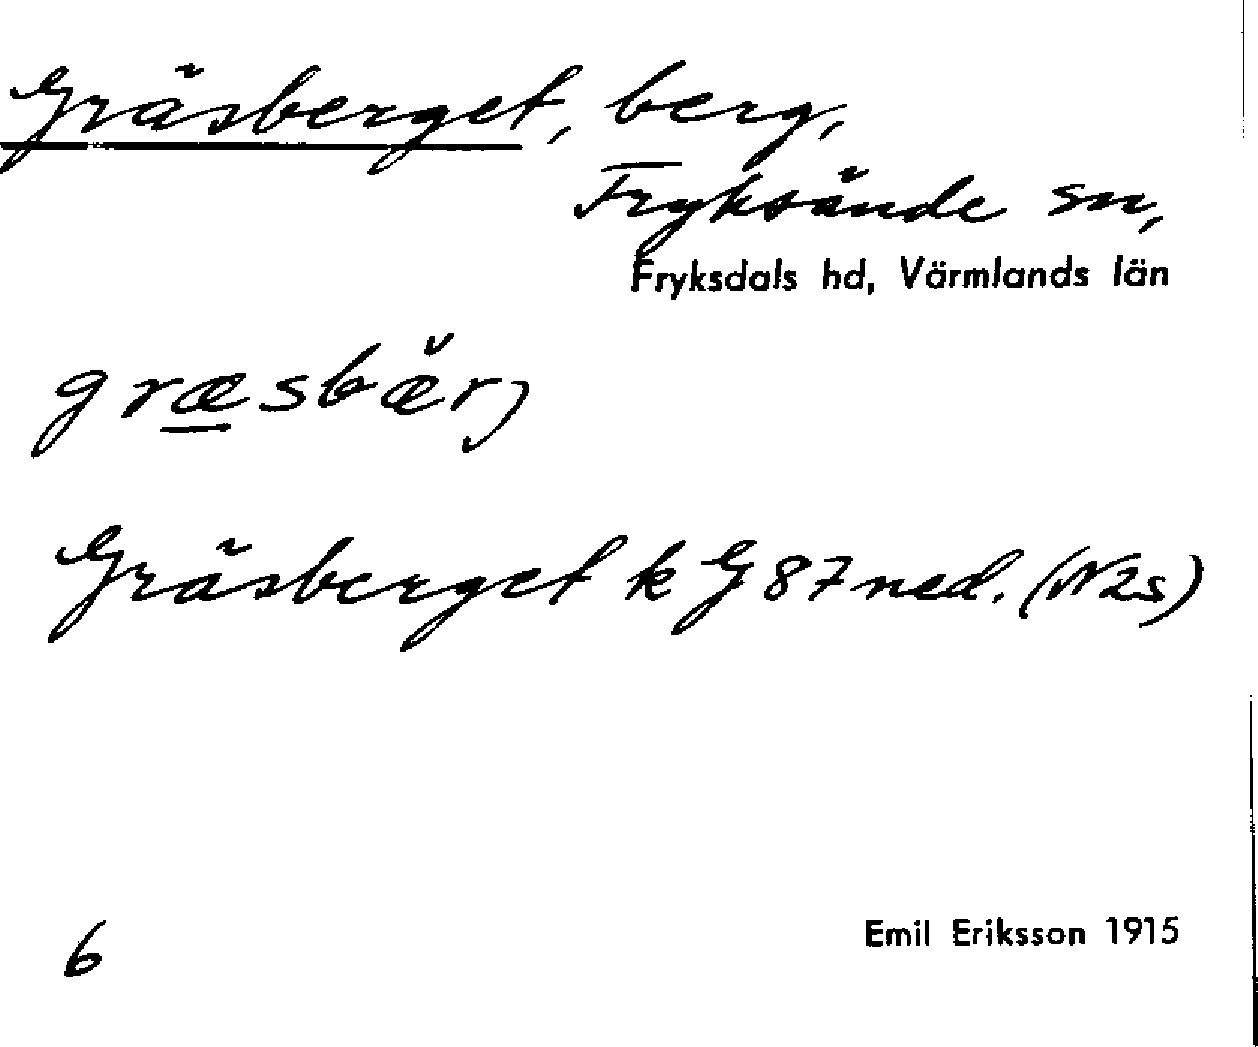 Gräsberget, berg,
Fryksände sn,
Fryksdals hd, Värmlands län
græsbæ̌rj
Gräsberget k G 87 ned. (N2s)
6
Emil Eriksson 1915